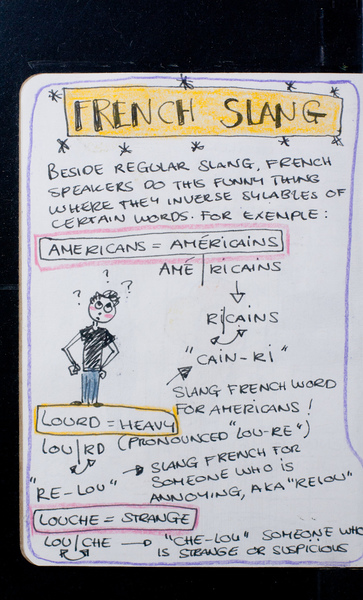 FRENCH SLANG
BESIDE REGULAR SLANG, FRENCH
SPEAKERS DO THIS FUNNY THING
WHERE THEY INVERSE SYLABLES OF
CERTAIN WORDS. FOR EXEMPLE :
AMERICANS = AMÉRICAINS
AMÉ|RICAINS
RI|CAINS
? ? ?
"CAIN-RI"
SLANG FRENCH WORD
FOR AMERICANS !
LOURD = HEAVY
(PRONOUNCED "LOU-RE")
LOU|RD
SLANG FRENCH FOR
SOMEONE WHO IS
ANNOYING, AKA "RELOU"
"RE-LOU"
LOUCHE = STRANGE
LOU/CHE → "CHE-LOU" SOMEONE WHO
IS STRANGE OR SUSPICIOUS